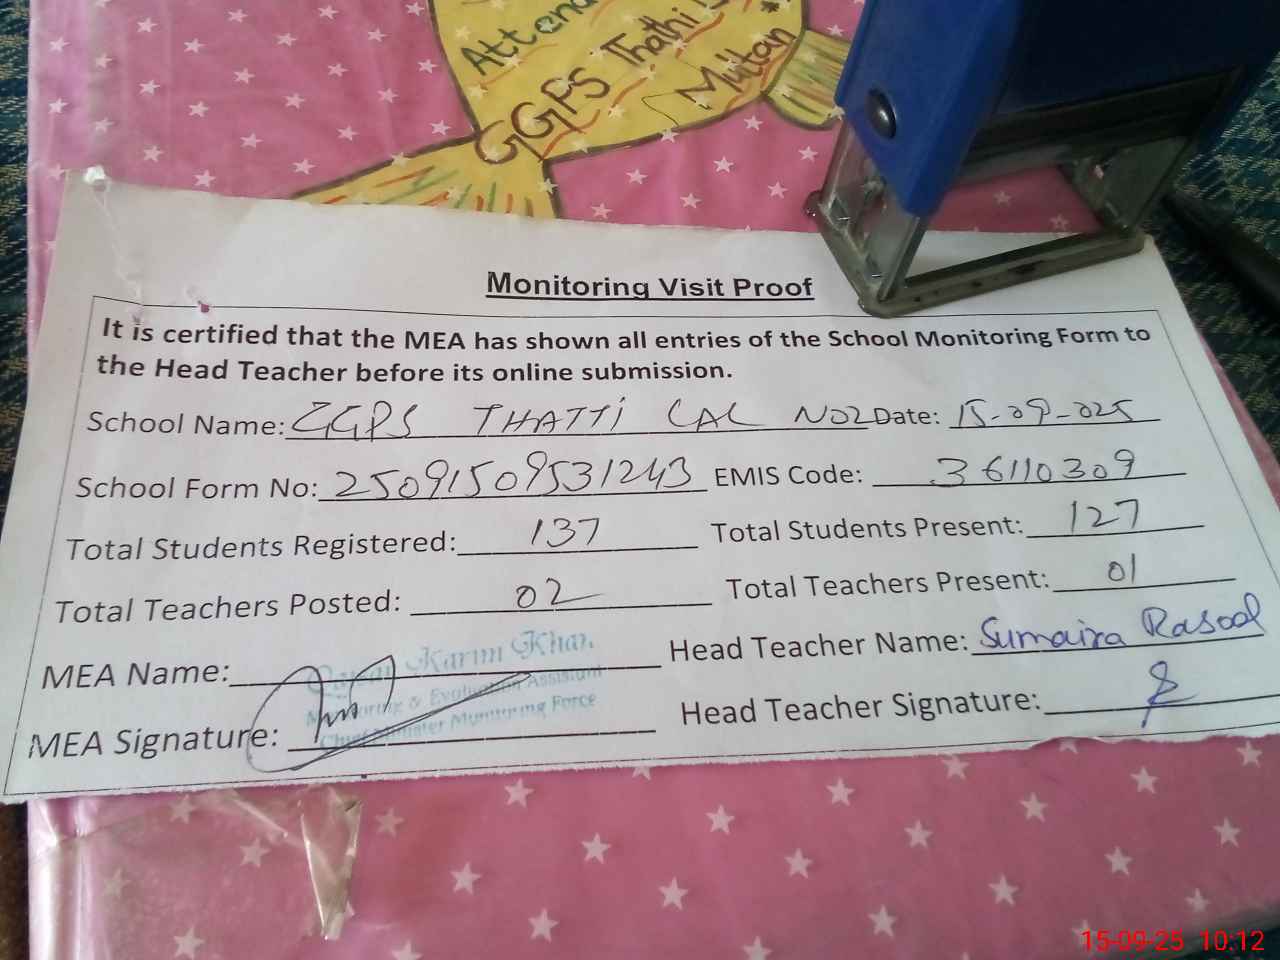 Attend
GGPS Thathi
Multan
Monitoring Visit Proof
It is certified that the MEA has shown all entries of the School Monitoring Form to
the Head Teacher before its online submission.
School Name: GGPS THATTI LAL NO2 Date: 15-09-025
School Form No: 25091509531243 EMIS Code: 36110309
Total Students Registered: 137 Total Students Present: 127
Total Teachers Posted: 02 Total Teachers Present: 01
MEA Name: Karim Khan Head Teacher Name: Sumaira Rasool
Monitoring & Evaluation Assistant
MEA Signature: Chief Minister Monitoring Force Head Teacher Signature:
15-09-25 10:12